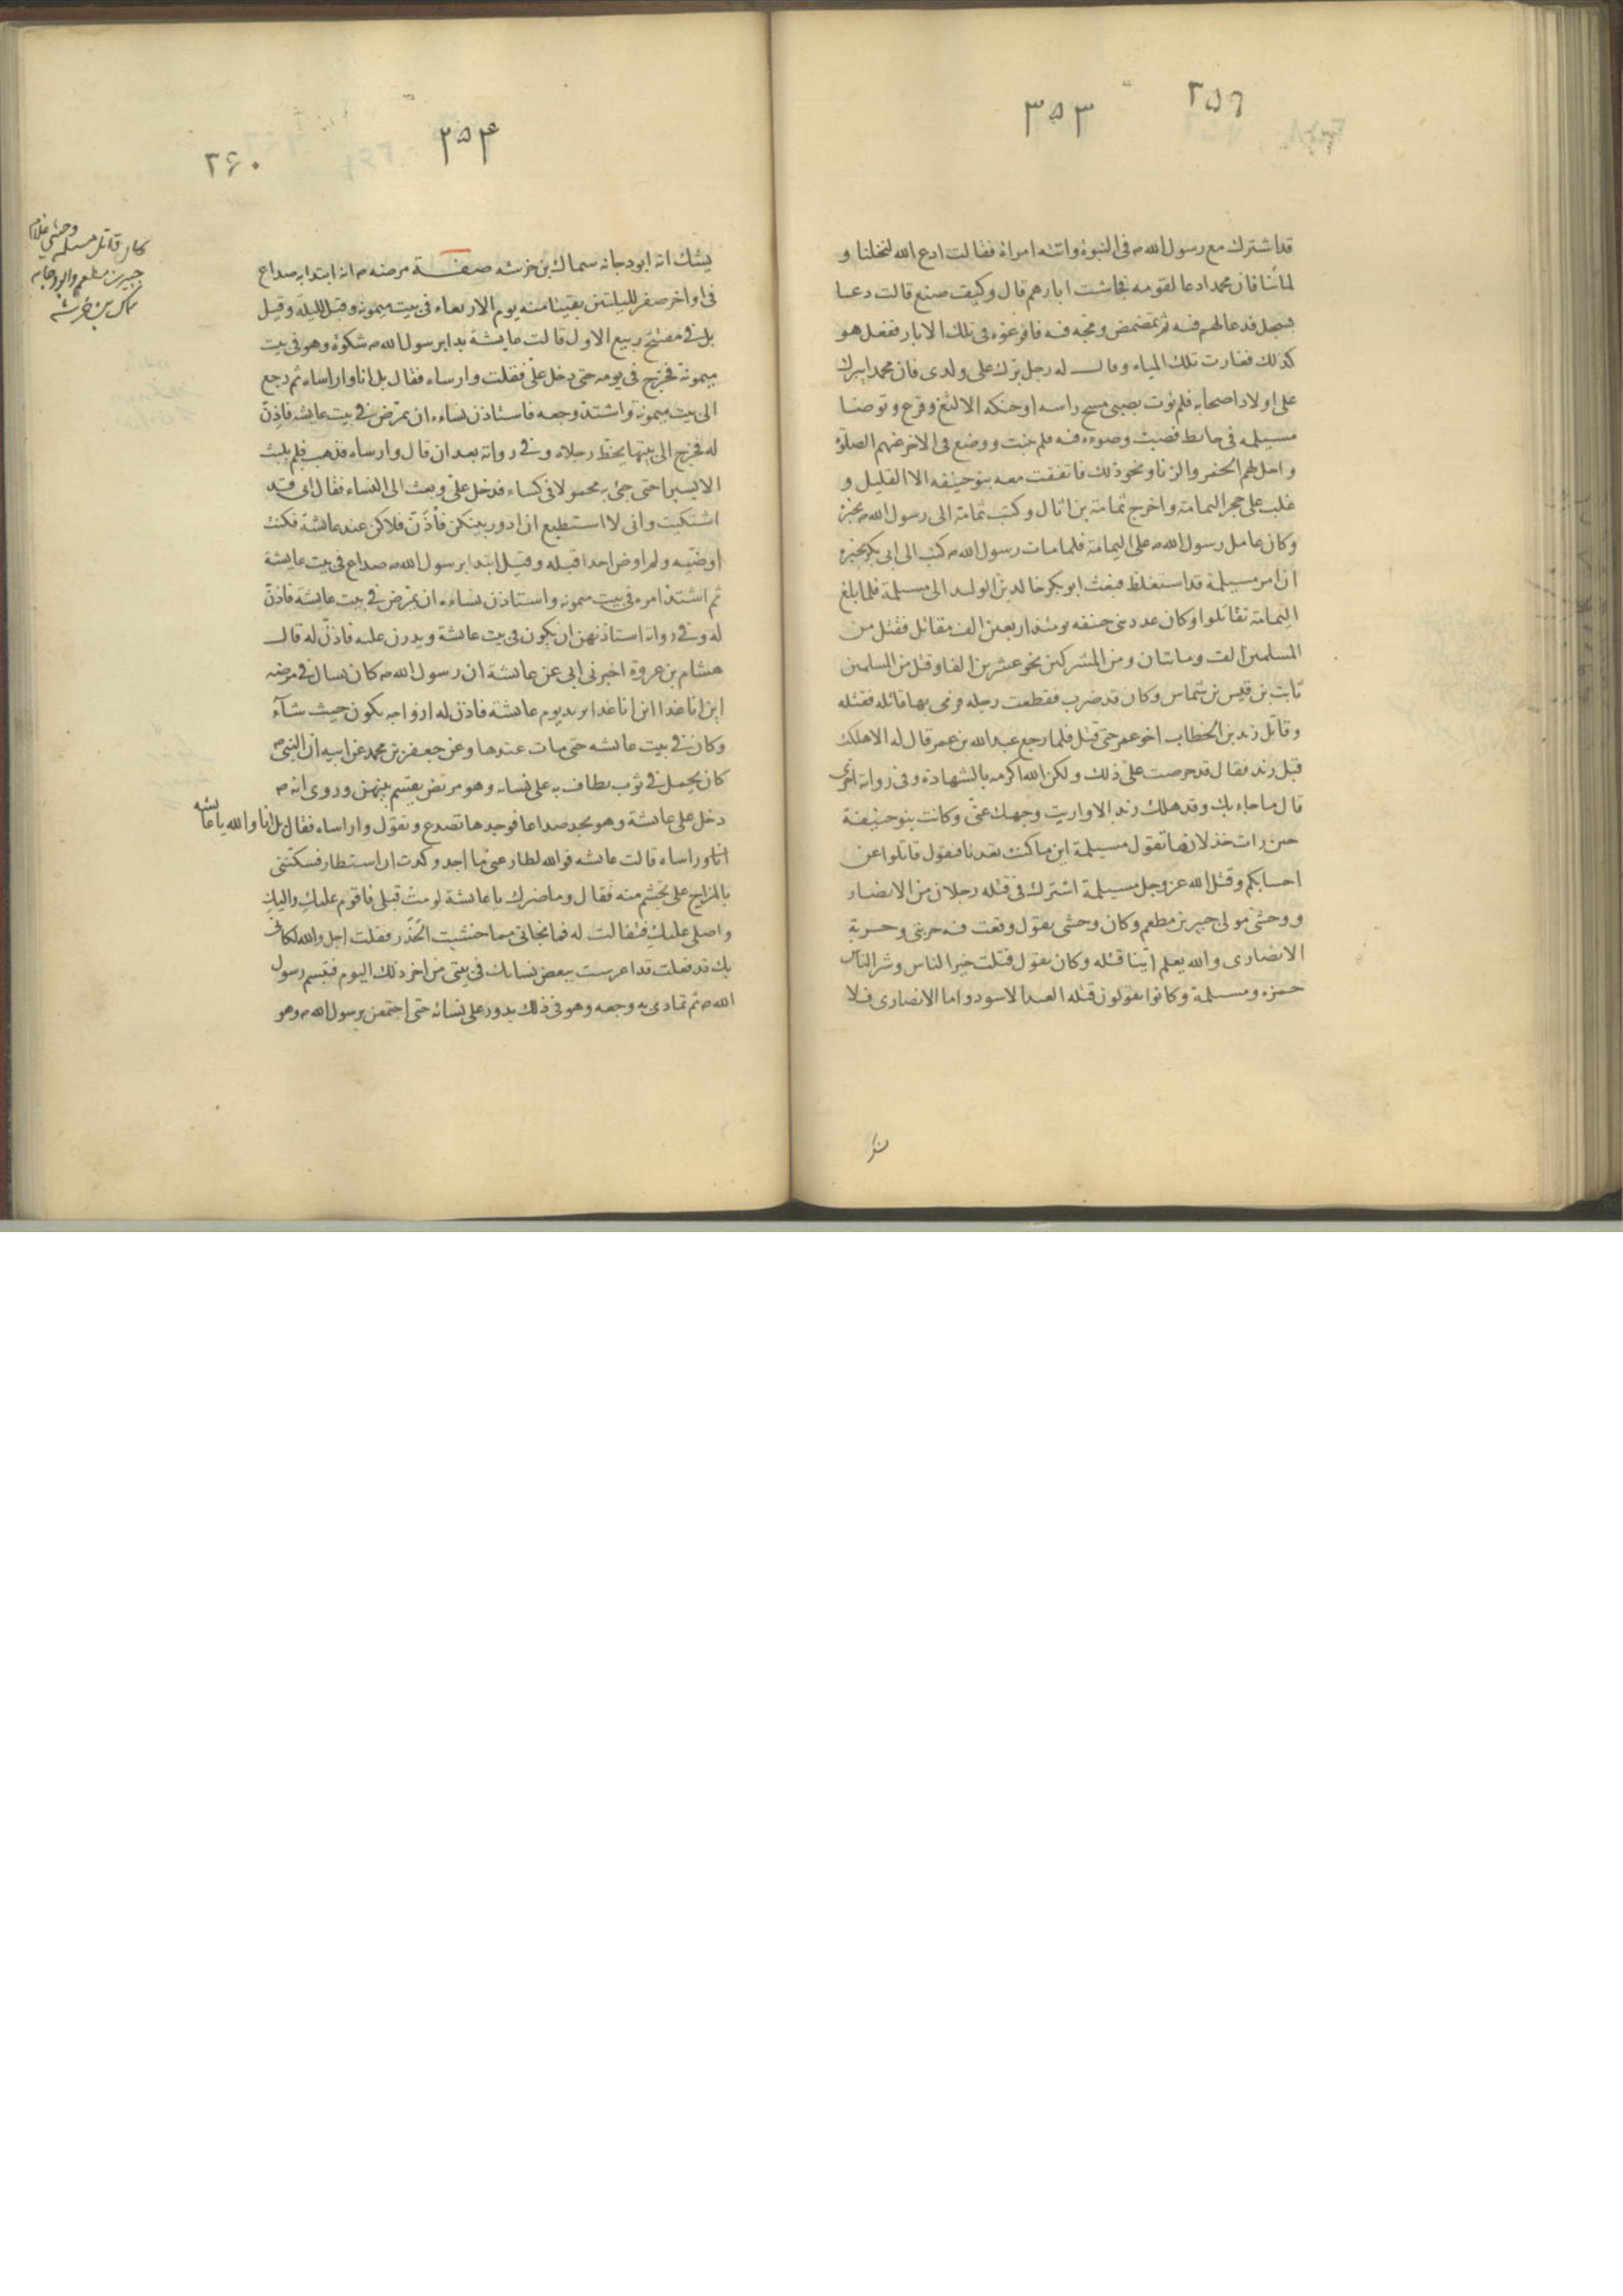 ۲۵۹
۳۵۳
قد اشترك مع رسول الله ص فى النبوة واتته امراة فقالت ادع الله لنخلنا و
لمائنا فان محمدا دعا لقومه فجاشت ابارهم قال وكيف صنع قالت دعا
بسجل فدعا لهم فيه ثم تمضمض ومجه فيه فافرغوه فى تلك الابار ففعل هو
كذلك فغارت تلك المياه وقال له رجل برك على ولدى فان محمدا يبرك
على اولاد اصحابه فلم يؤت بصبى مسح راسه او حنكه الا لثغ وقرع وتوضا
مسيلمه فى حائط فصبت وضوءه فيه فلم ينبت ووضع فى الاخر عنهم الصلوة
واحل لهم الخمر والزنا ونحو ذلك فاتفقت معه بنو حنيفه الا القليل و
غلب على حجر اليمامة واخرج ثمامة بن اثال وكتب ثمامة الى رسول الله ص يخبره
وكان عامل رسول الله ص على اليمامة فلما مات رسول الله ص كتب الى ابى بكر يخبره
ان امر مسيلمة قد استغلظ فبعث ابو بكر خالد بن الوليد الى مسيلمة فلما بلغ
اليمامة تقاتلوا وكان عدد بنى حنيفه يومئذ اربعين الف مقاتل فقتل من
المسلمين الف ومائتان ومن المشركين نحو عشرين الفا وقتل من المسلمين
ثابت بن قيس بن شماس وكان قد ضرب فقطعت رجله فرمى بها قاتله فقتله
وقاتل زيد بن الخطاب اخو عمر حتى قتل فلما رجع عبد الله بن عمر قال له الا هلكت
قبل زيد فقال قد حرصت على ذلك ولكن الله اكرمه بالشهادة وفى رواية اخرى
قال ما جاء بك وقد هلك زيد الا واريت وجهك عنى وكانت بنو حنيفة
حين رات خذلانها تقول مسيلمة اين ما كنت تعدنا فيقول قاتلوا عن
احسابكم وقتل الله عز وجل مسيلمة اشترك فى قتله رجلان من الانصار
ووحشى مولى جبير بن مطعم وكان وحشى يقول وقعت فيه حربتى وحربة
الانصارى والله يعلم اينا قتله وكان يقول قتلت خير الناس وشر الناس
حمزه ومسيلمة وكانوا يقولون قتله العبد الاسود واما الانصارى فلا
۳۵۴
۲۶۰
يشك انه ابو دجانه سماك بن خرشه صفـــة مرضه ص انه ابتدا به صداع
فى اواخر صفر لليلتين بقيتا منه يوم الاربعاء فى بيت ميمونه وقيل لليلة وقيل
بل فى مفتتح ربيع الاول قالت عايشة بدا برسول الله ص شكوة وهو فى بيت
ميمونة فخرج فى يومه حتى دخل على فقلت وارساه فقال بل انا واراساه ثم رجع
الى بيت ميمونة واشتد وجعه فاستاذن نساءه ان يمرض فى بيت عايشه فاذن
له فخرج الى بيتها يخط رجلاه وفى رواية بعد ان قال وارساه فذهب فلم يلبث
الا يسيرا حتى جئ به محمولا فى كساء فدخل على وبعث الى النساء فقال انى قد
اشتكيت وانى لا استطيع ان ادور بينكن فأذن فلاكن عند عائشة فكنت
اوضيه ولم اوض احدا قبله وقيل ابتدا برسول الله ص صداع فى بيت عايشة
ثم اشتد امره فى بيت ميمونه واستاذن نساءه ان يمرض فى بيت عايشة فاذن
له وفى رواية استاذنهن ان يكون فى بيت عائشة ويدرن عليه فاذن له قال
هشام بن عروة اخبرنى ابى عن عايشة ان رسول الله ص كان يسال فى مرضه
اين انا غدا اين انا غدا يريد يوم عائشة فاذن له ازواجه يكون حيث شآء
وكان فى بيت عايشه حتى مات عندها وعن جعفر بن محمد عن ابيه ان النبى ص
كان يحمل فى ثوب يطاف به على نسائه وهو مريض يقسم بينهن وروى انه ص
دخل على عائشة وهو يجد صداعا فوجدها تصدع وتقول واراساه فقال بل انا والله يا عائشه
اناوراساه قالت عايشه فوالله لطار عنى ما اجد وكدت ان استطار فسكتنى
بالمزاح على تجشم منه فقال وما ضرك يا عايشة لو مت قبلى فاقوم عليك واليك
واصلى عليك فقالت له فما نجانى مما خشيت الحذر فقلت اجل والله لكانى
بك قد فعلت قد اعرست ببعض نسائك فى بيتى من اخر ذلك اليوم فتبسم رسول
الله ص ثم تمادى به وجعه وهو فى ذلك يدور على نسائه حتى اجتمعن برسول الله ص وهو
كان قاتل مسيلمه وحشى غلام
جبير بن مطعم و ابو دجانه
سماك بن خرشه